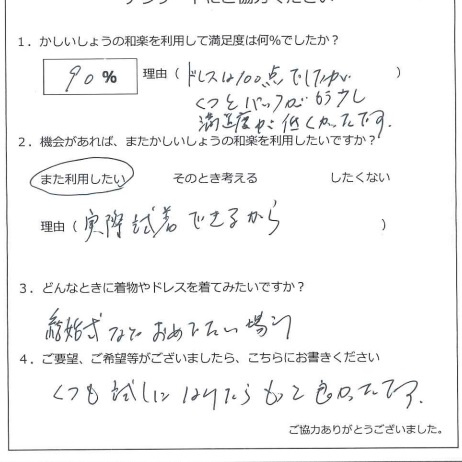 アンケートにご協力ください
1．かしいしょうの和楽を利用して満足度は何%でしたか？
90% 理由（ドレスは100点でしたが）
くつとバッグがもう少し
満足度が低くかったです。
2．機会があれば、またかしいしょうの和楽を利用したいですか？
また利用したい そのとき考える したくない
理由（実際試着できるから）
3．どんなときに着物やドレスを着てみたいですか？
結婚式などおめでたい場
4．ご要望、ご希望等がございましたら、こちらにお書きください
くつも試しにはけたらもっと良かったです。
ご協力ありがとうございました。